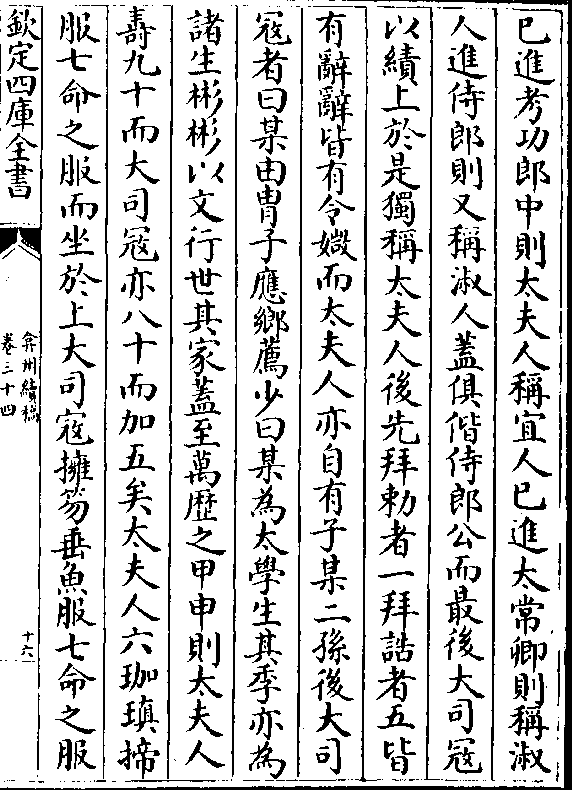 已進考功郎中則太夫人稱宜人已進太常卿則稱淑
人進侍郎則又稱淑人蓋俱偕侍郎公而最後大司冦
以績上於是獨稱太夫人後先拜勅者一拜誥者五皆
有辭辭皆有令媺而太夫人亦自有子某二孫後大司
冦者曰某由胄子應鄉薦少曰某為太學生其季亦為
諸生彬彬以文行世其家蓋至萬歴之甲申則太夫人
壽九十而大司冦亦八十而加五矣太夫人六珈瑱揥
服七命之服而坐於上大司冦擁笏垂魚服七命之服
欽定四庫全書
弇州續稿
卷三十四
十六